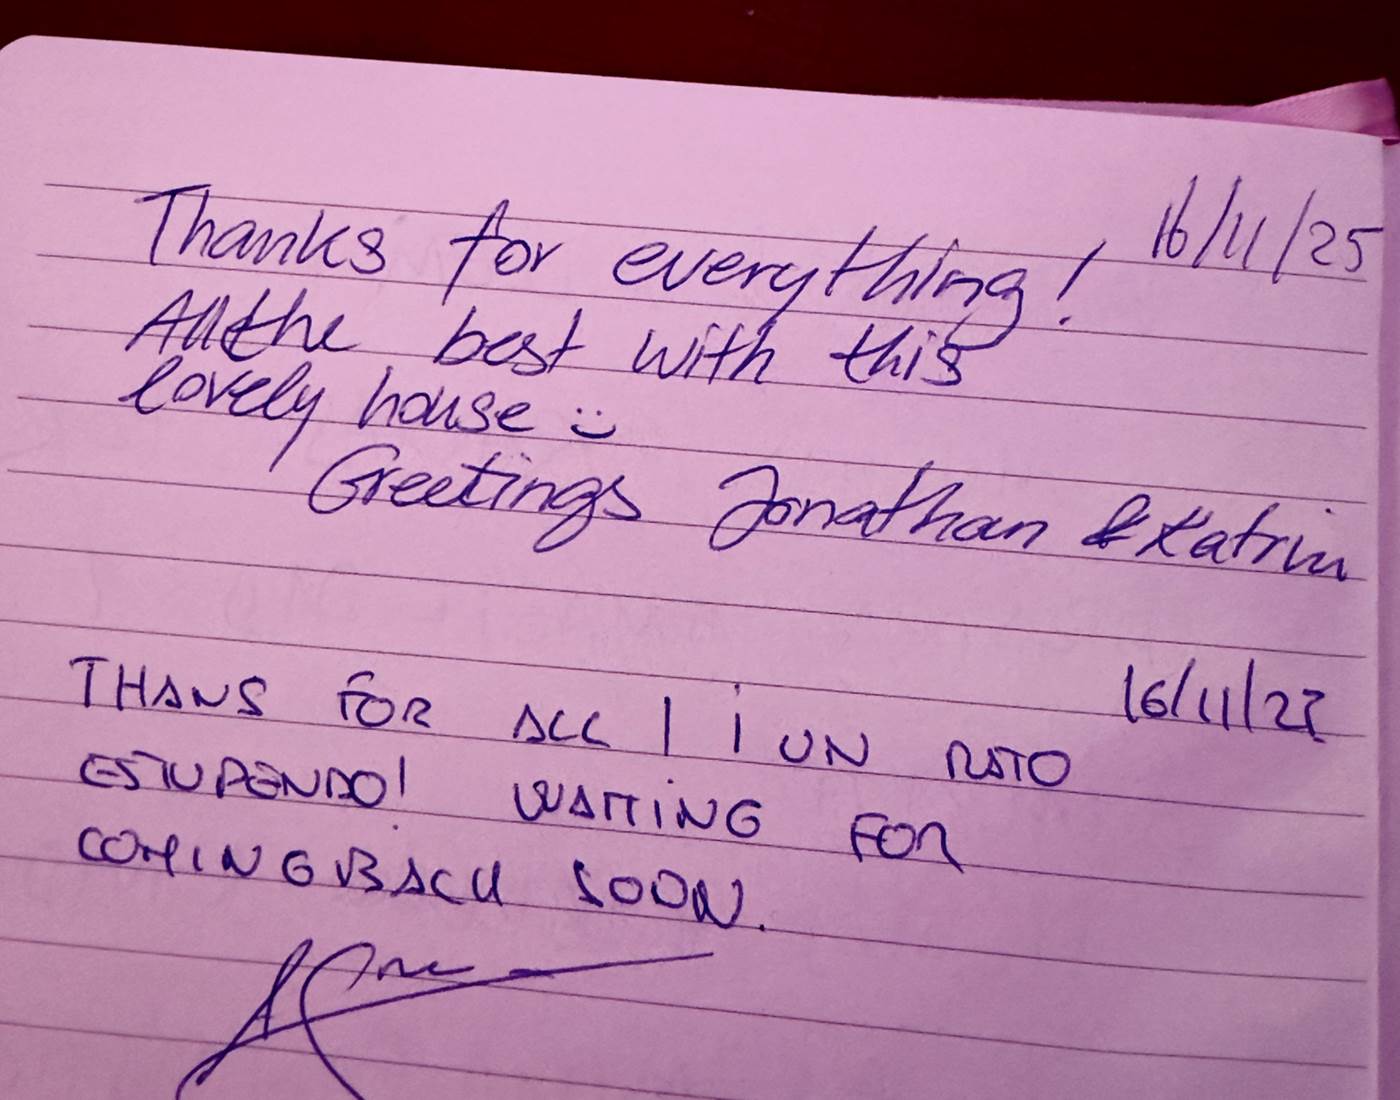 Thanks for everything! 16/11/25
All the best with this
lovely house :)
Greetings Jonathan & Katrin
16/11/25
THANS FOR ALL! ¡UN RATO
ESTUPENDO! WAITING FOR
COMING BACK SOON.